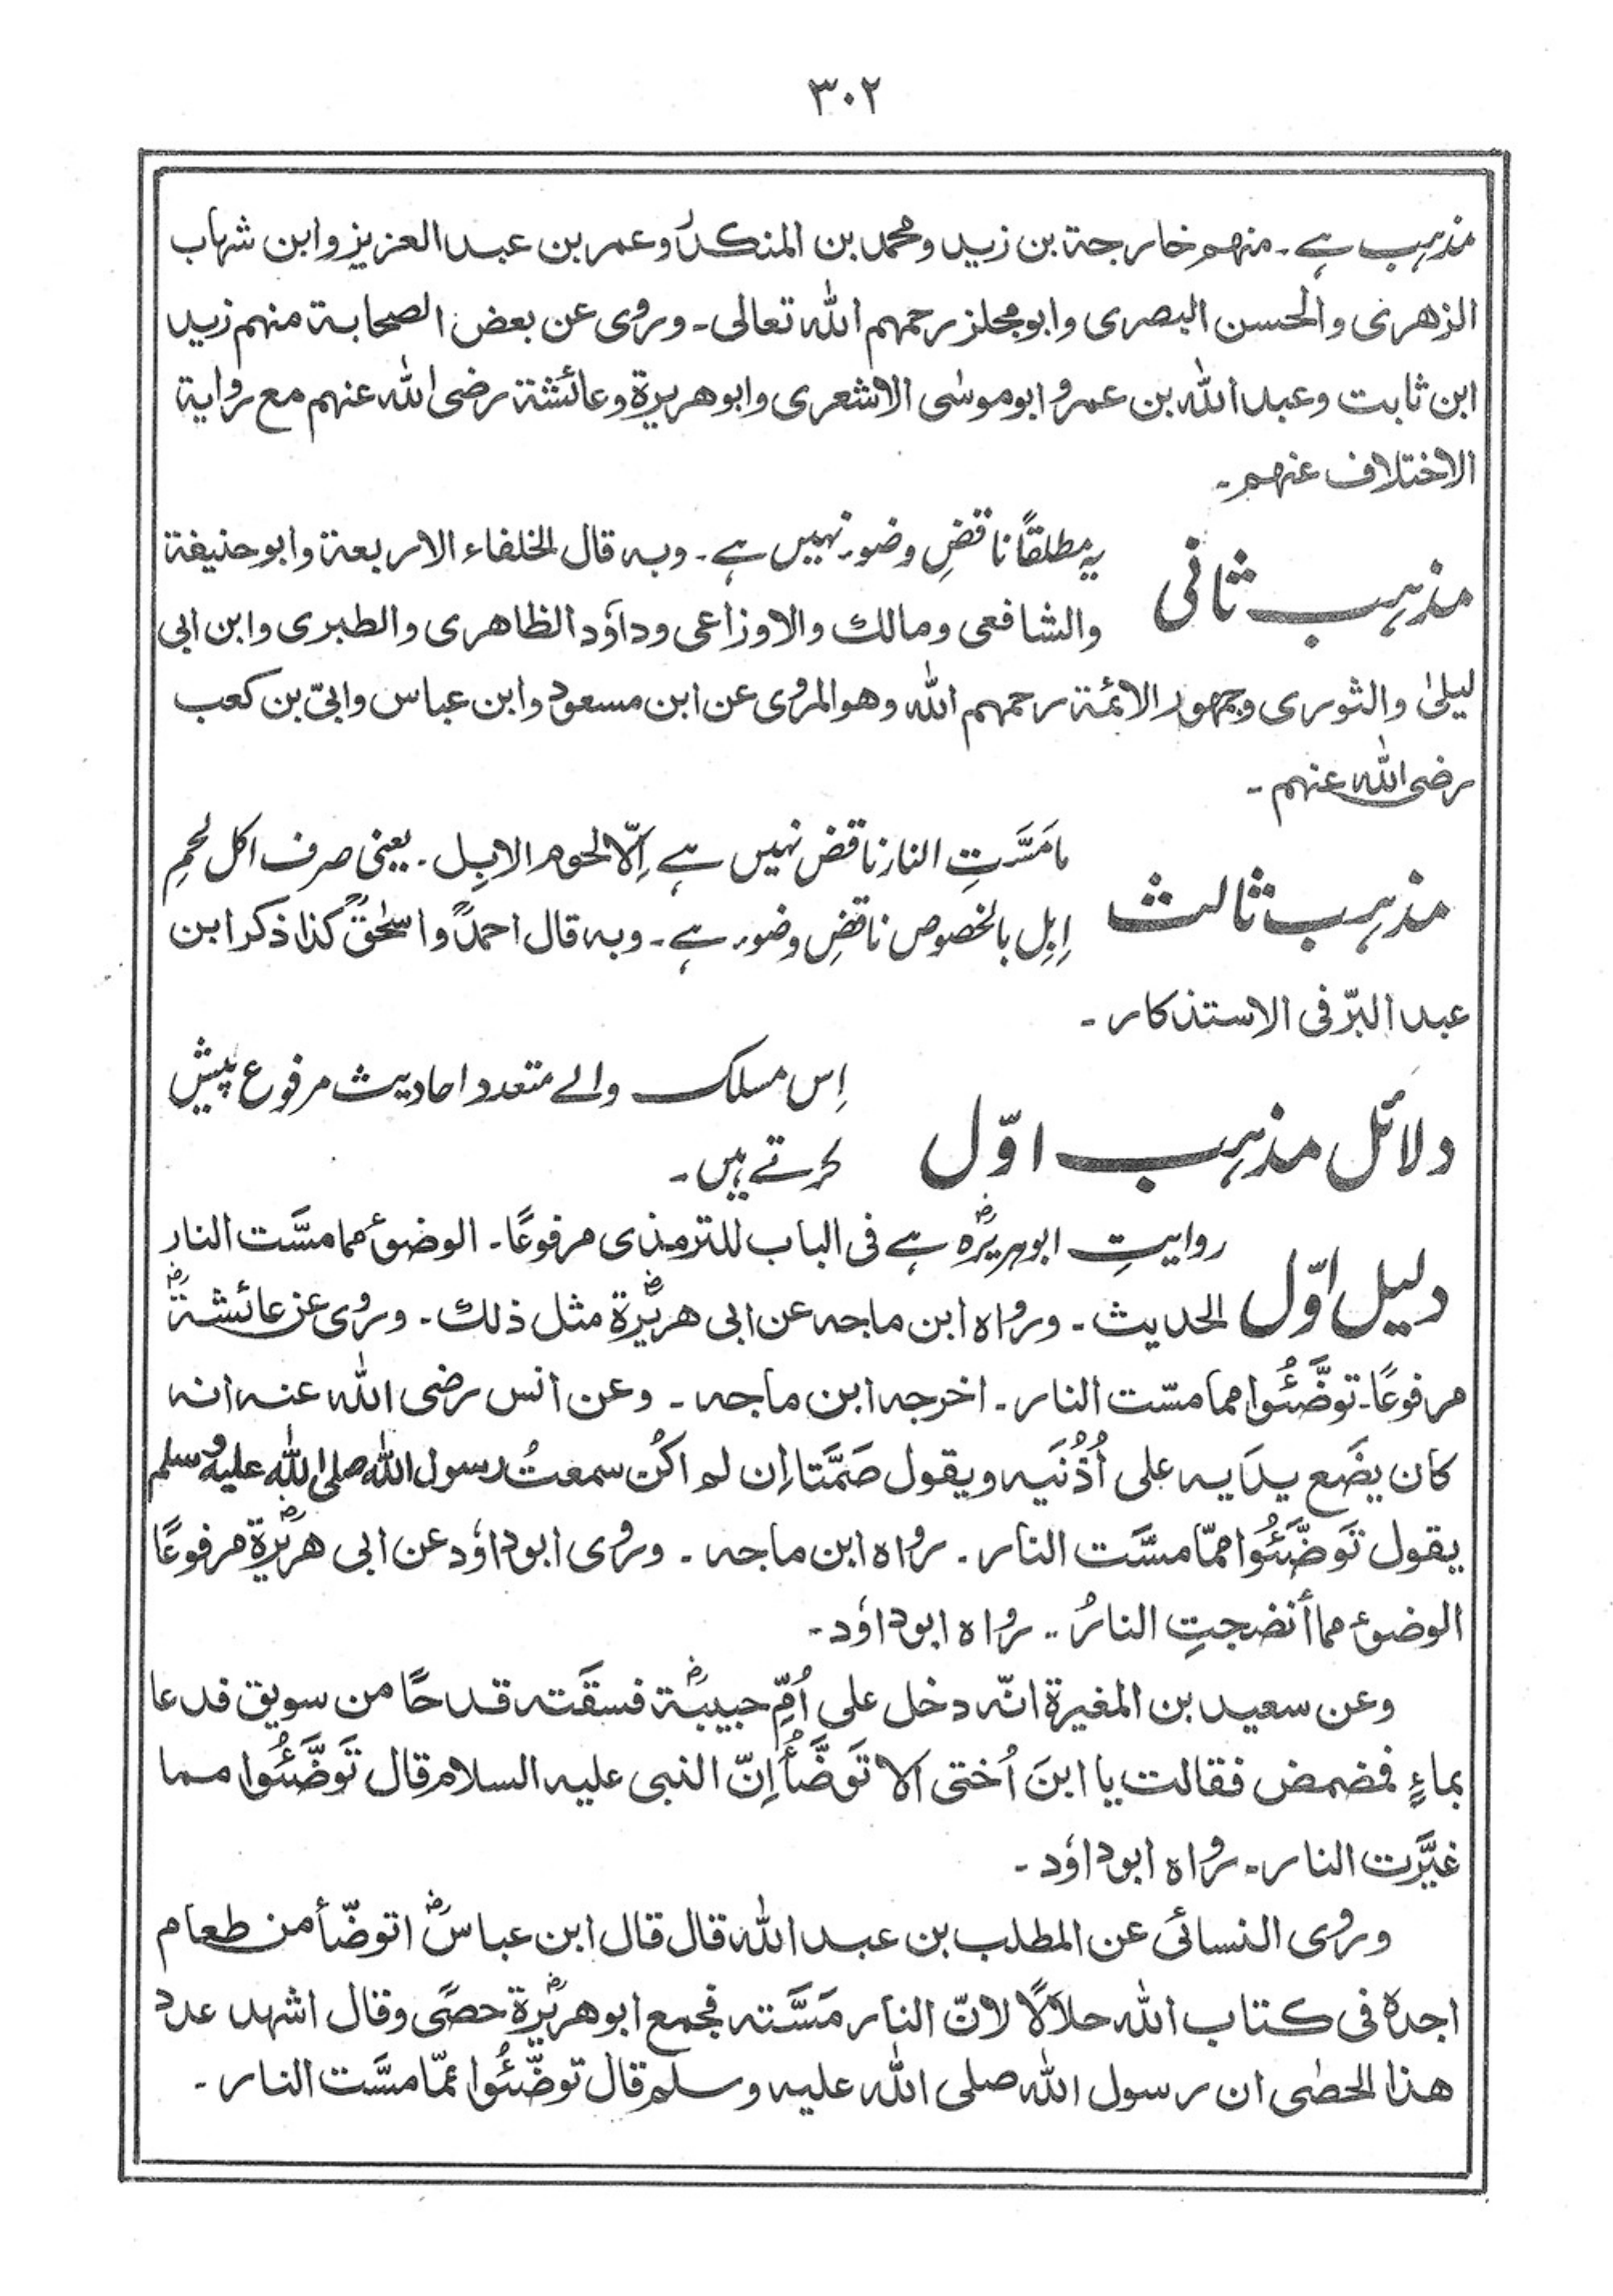 ۳۰۲
مذہب ہے۔ منهم خارجة بن زيد ومحمد بن المنكدرُ وعمر بن عبد العزيز وابن شهاب
الزهرى والحسن البصرى وابومجلز رحمهم الله تعالى۔ وروى عن بعض الصحابة منهم زيد
ابن ثابت وعبد الله بن عمرو ابوموسٰى الاشعرى وابوهريرة وعائشة رضى الله عنهم مع رواية
الاختلاف عنهم۔
مذہب ثانی یہ مطلقًا ناقضِ وضوء نہیں ہے۔ وبه قال الخلفاء الاربعة وابوحنيفة
والشافعى ومالك والاوزاعى وداؤد الظاهرى والطبرى وابن ابى
ليلىٰ والثورى وجمهور الائمة رحمهم الله وهو المروى عن ابن مسعود وابن عباس وابىّ بن كعب
رضى الله عنهم۔
مذہب ثالث مَا مَسَّتِ النار ناقض نہیں ہے اِلّا لحوم الابِل۔ یعنی صرف اکل لحمِ
اِبِل بالخصوص ناقضِ وضوء ہے۔ وبه قال احمدؒ واسحٰقؒ كذا ذكر ابن
عبد البرّ فى الاستذكار۔
دلائل مذہب اوّل اِس مسلک والے متعدد احادیث مرفوع پیش
کرتے ہیں۔
دلیل اوّل روایتِ ابوہریرہؓ ہے فى الباب للترمذى مرفوعًا۔ الوضوءُ مما مسَّت النار
الحديث۔ ورواه ابن ماجه عن ابى هريرةؓ مثل ذلك۔ وروى عن عائشةؓ
مرفوعًا۔ توضَّئُوا مما مسّت النار۔ اخرجه ابن ماجه۔ وعن انس رضى الله عنه انه
كان يضَع يدَيه على اُذُنَيه ويقول صَمَّتا اِن لم اكُن سمعتُ رسول الله صلى الله عليه وسلم
يقول تَوضَّئُوا ممّا مسَّت النار۔ رواه ابن ماجه۔ وروى ابوداؤد عن ابى هريرةؓ مرفوعًا
الوضوءُ مما أنضجتِ النارُ۔۔ رواه ابوداؤد۔
وعن سعيد بن المغيرة انّه دخل على اُمِّ حبيبةؓ فسقَته قدحًا من سويق فدعا
بماءٍ فمضمض فقالت يا ابنَ اُختى الا تَوَضَّأُ اِنّ النبى عليه السلام قال تَوَضَّئُوا مما
غيَّرت النار۔ رواه ابوداؤد۔
وروى النسائى عن المطلب بن عبد الله قال قال ابن عباسؓ اتوضّأ من طعام
اجده فى كتاب الله حلالًا لانّ النار مَسَّته فجمع ابوهريرةؓ حصًى وقال اشهد عدد
هذا الحصٰى ان رسول الله صلى الله عليه وسلم قال توضَّئُوا ممّا مسَّت النار۔